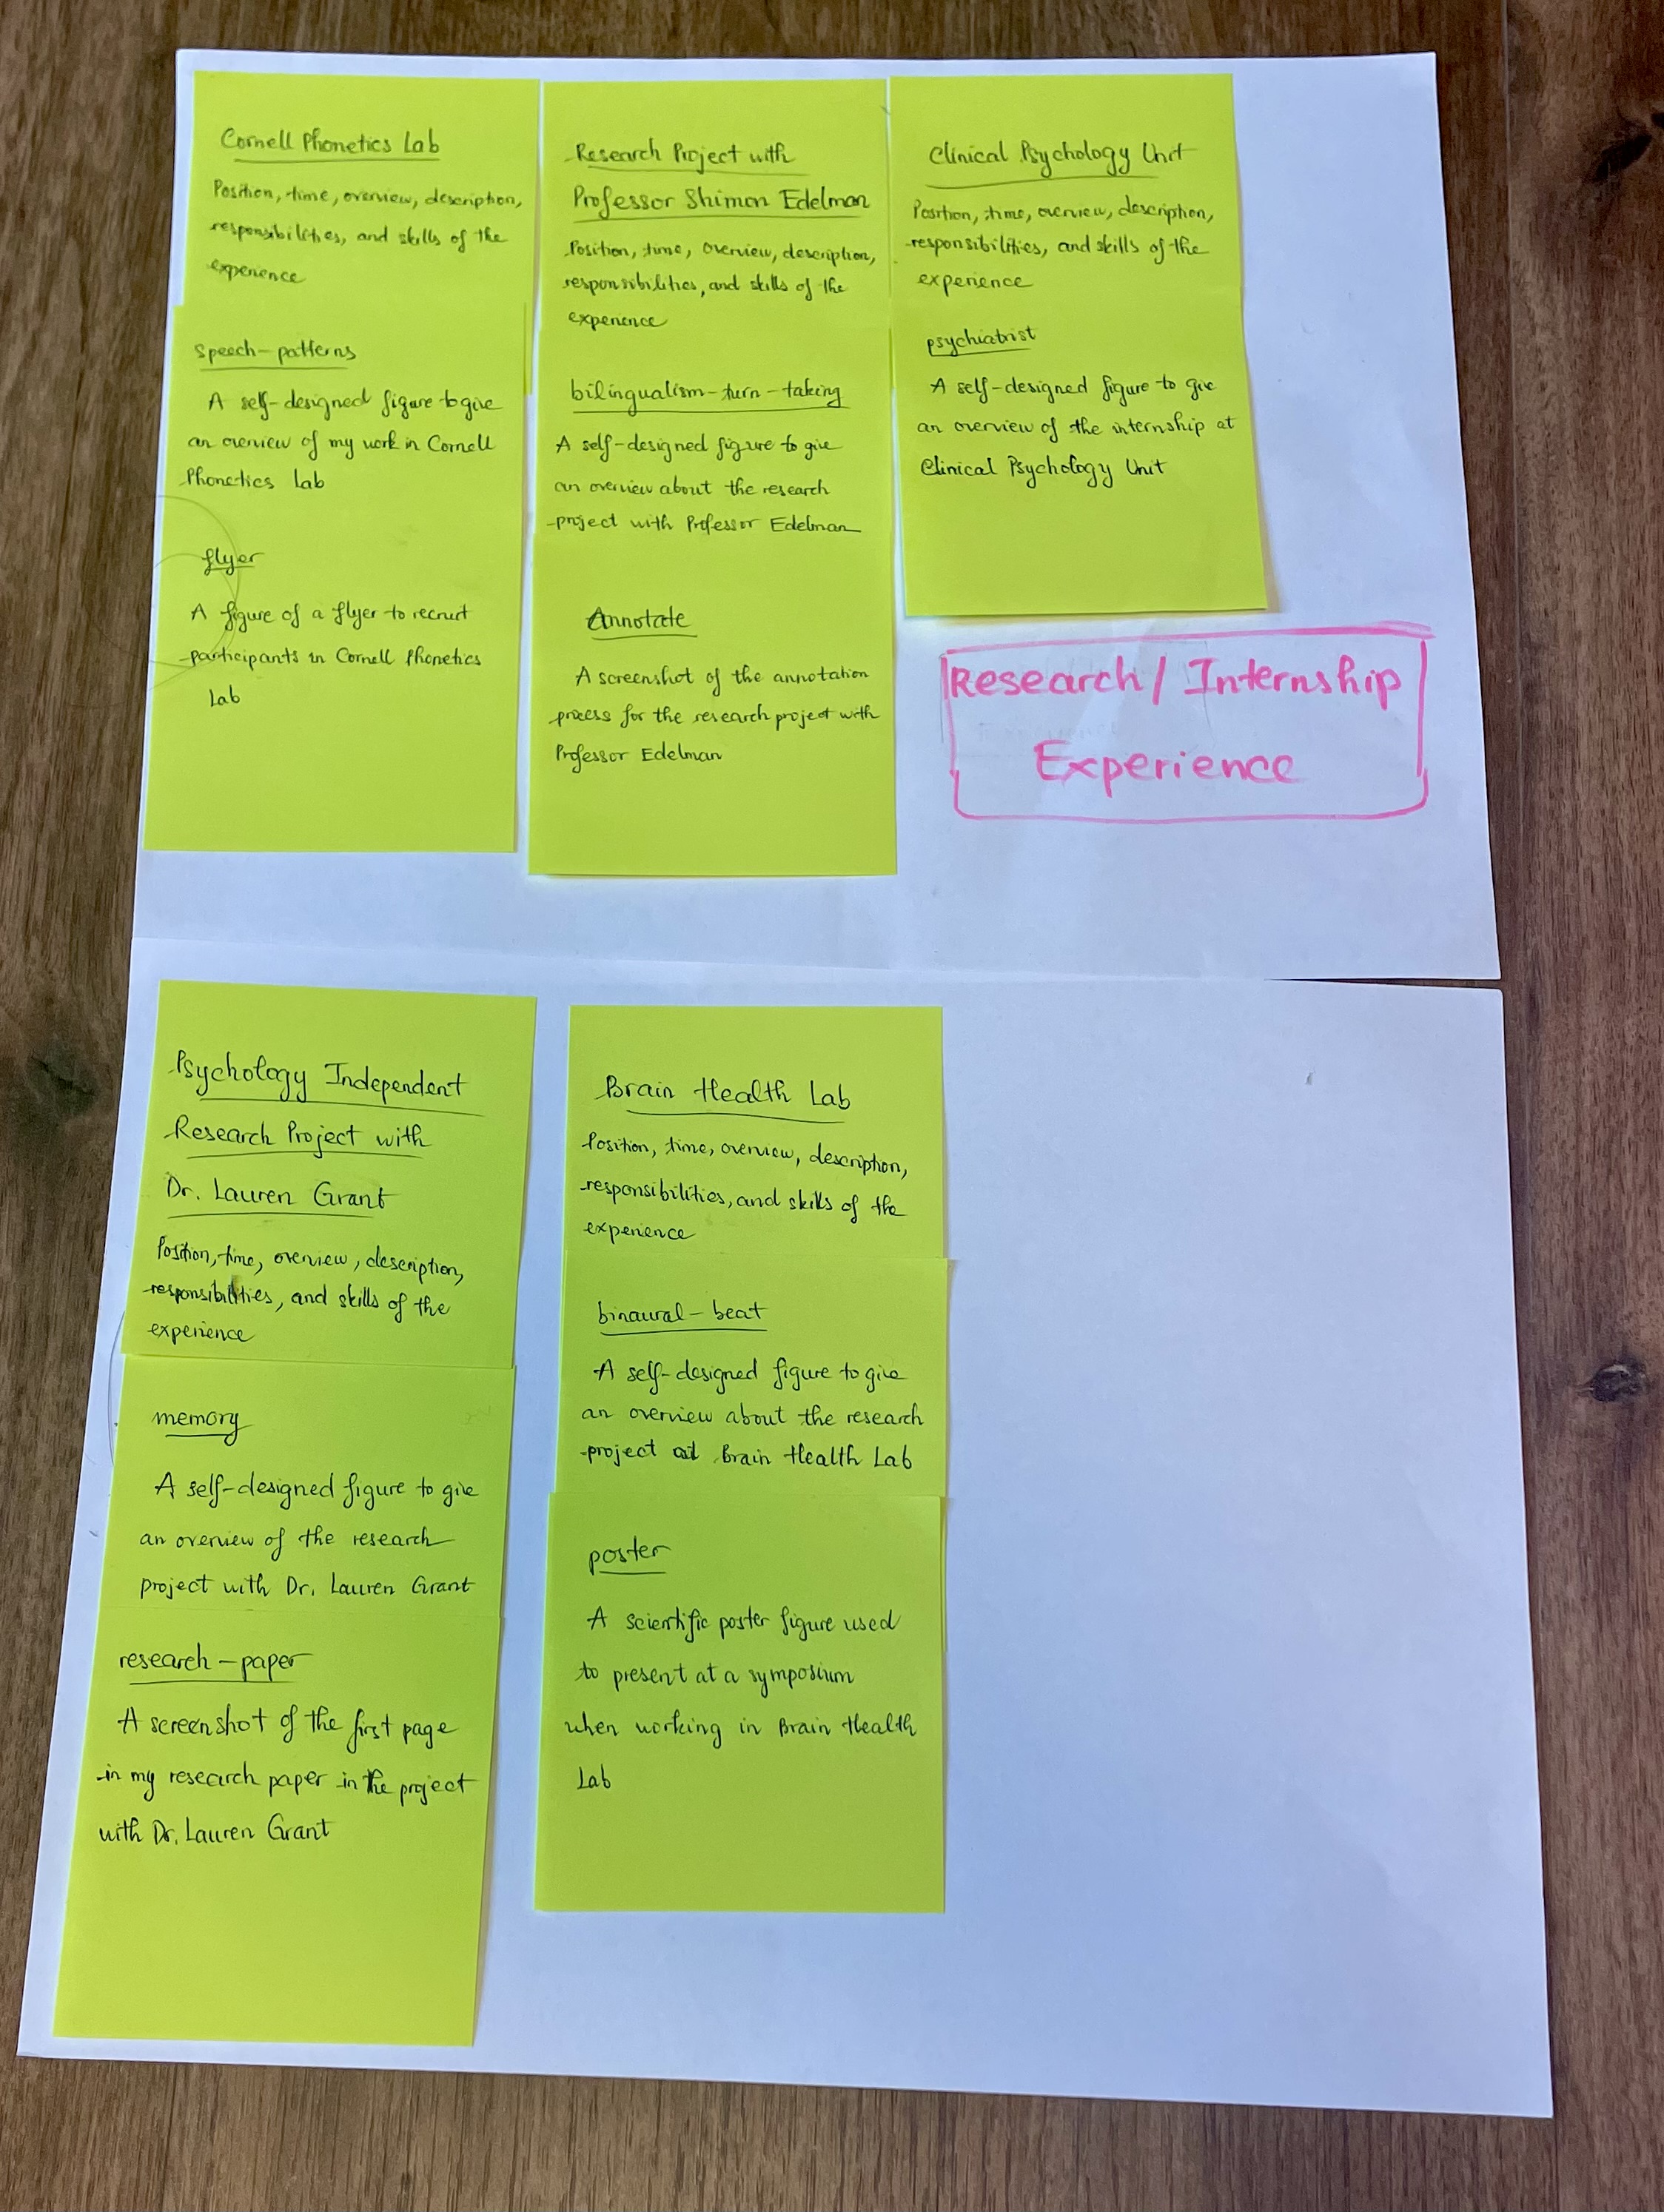 Cornell Phonetics Lab
Position, time, overview, description,
responsibilities, and skills of the
experience
speech-patterns
A self-designed figure to give
an overview of my work in Cornell
Phonetics Lab
flyer
A figure of a flyer to recruit
participants in Cornell Phonetics
Lab
Research Project with
Professor Shimon Edelman
Position, time, overview, description,
responsibilities, and skills of the
experience
bilingualism-turn-taking
A self-designed figure to give
an overview about the research
project with Professor Edelman
Annotate
A screenshot of the annotation
process for the research project with
Professor Edelman
Clinical Psychology Unit
Position, time, overview, description,
responsibilities, and skills of the
experience
psychiatrist
A self-designed figure to give
an overview of the internship at
Clinical Psychology Unit
Research/Internship
Experience
Psychology Independent
Research Project with
Dr. Lauren Grant
Position, time, overview, description,
responsibilities, and skills of the
experience
memory
A self-designed figure to give
an overview of the research
project with Dr. Lauren Grant
research-paper
A screenshot of the first page
in my research paper in the project
with Dr. Lauren Grant
Brain Health Lab
Position, time, overview, description,
responsibilities, and skills of the
experience
binaural-beat
A self-designed figure to give
an overview about the research
project at Brain Health Lab
poster
A scientific poster figure used
to present at a symposium
when working in Brain Health
Lab